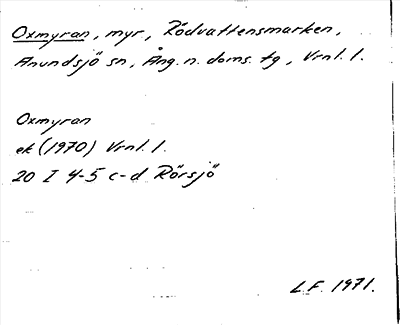 Oxmyran, myr, Rödvattensmarken,
Anundsjö sn, Ång. n. doms. tg, Vrnl. l.
Oxmyran
ek (1970) Vrnl. l.
20 I 4-5 c-d Rörsjö
L.F. 1971.